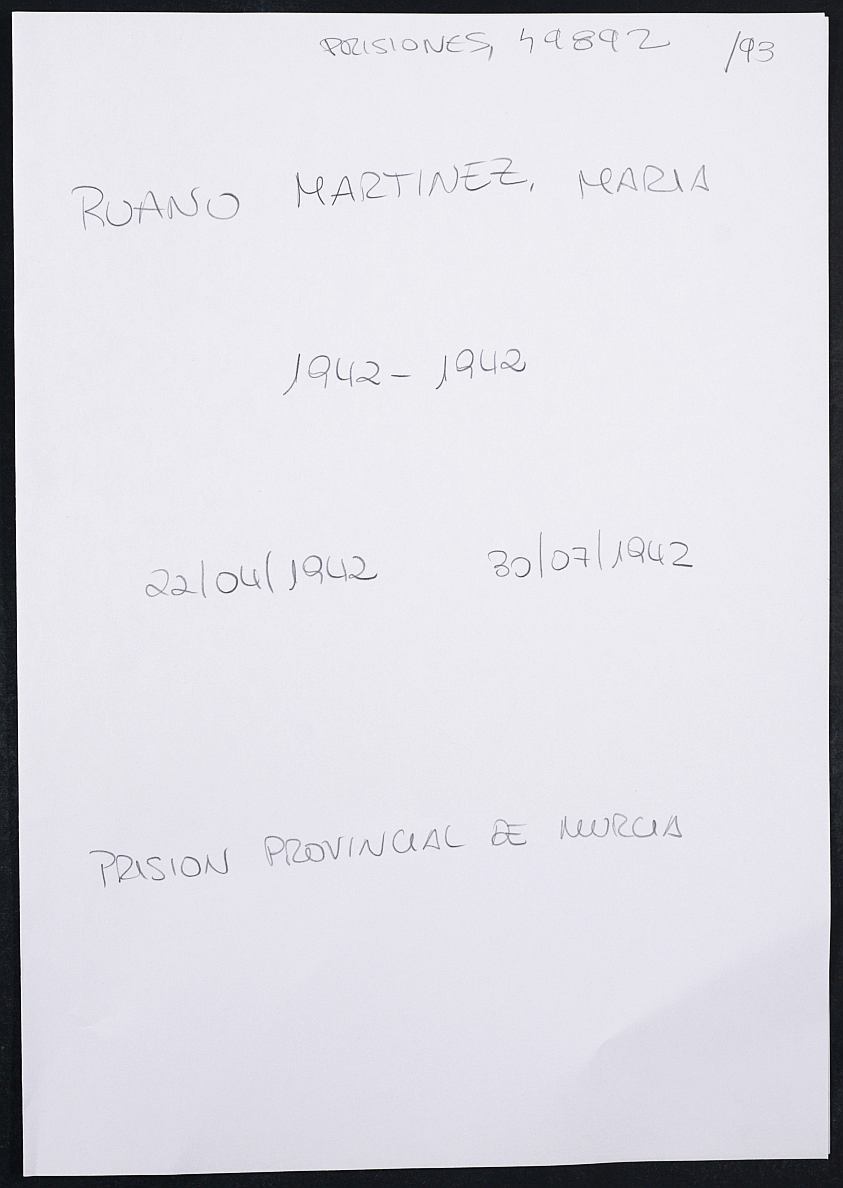 PRISIONES, 49892 /93
RUANO MARTINEZ, MARIA
1942 - 1942
22/04/1942 30/07/1942
PRISION PROVINCIAL DE MURCIA